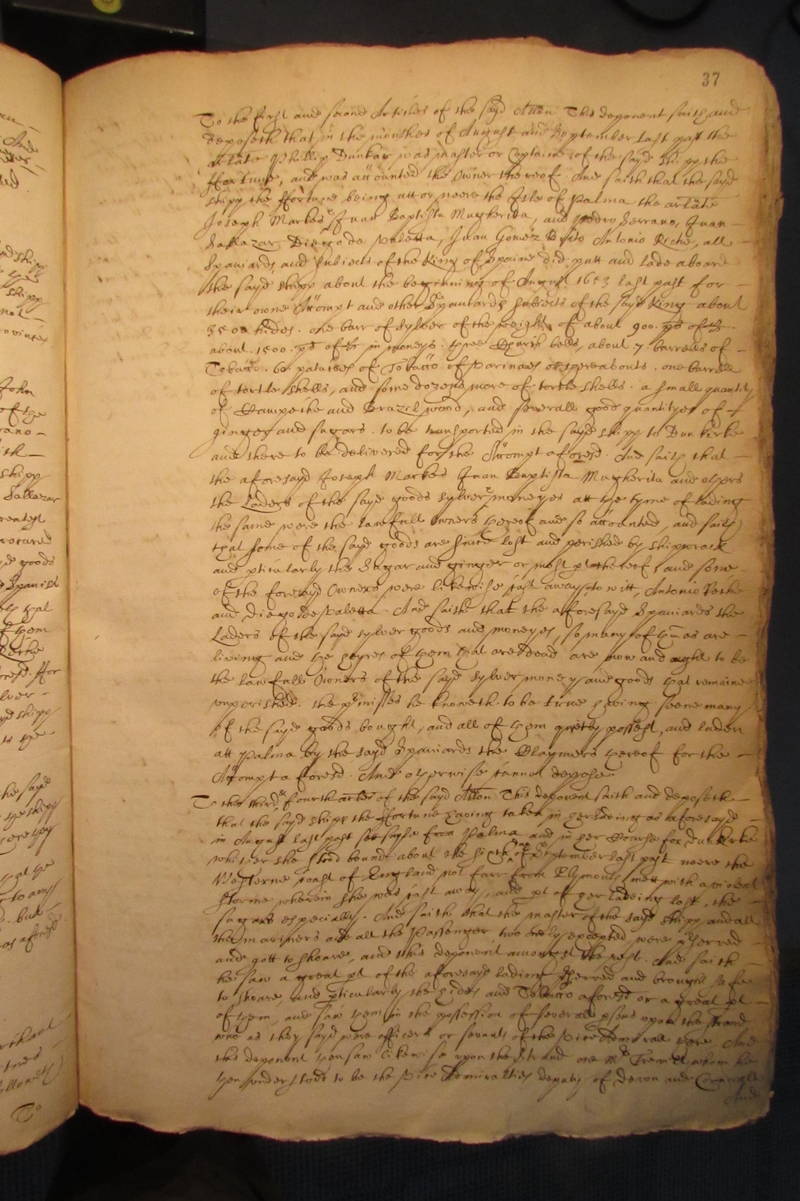 37
To the first and second Articles of the sayd Allon This deponent saith and
deposeth that in the monthes of August and September last past the
arlate Phillip Dunkar was master or Captaine of the sayd shipp the
ffortune, and was accounted the Owner thereof. And saith that the sayd
shipp the ffortune being att or neere the Isle of Palma the arlate
Joseph Markes Juan Baptista Mugherita, and Pedro Serrano, Juan
Sallazar Diego de Valetta, Juan Gomez Antonio Roche, all
Spaniards and subiects of the King of Spaine did putt and lade aboard
the sayd shipp about the beginning of August 1653 last past for
their owne Accompt and other Spaniards subiects of the sayd King about
3500 hides. one barr of sylver of the weight of about 900. ps of
about 1500. ps of in moneys. three Church bells, about 7 barrells of
Tobacco. 60 of Tobacco of Varinaes or thereabouts. one barrell
of tortle shells, and some dozens more of tortle shells. a small quantity
of Campeche and Brazil wood, and severall good quantityes of
ginger and sugars. to be transported in the sayd shipp to Dunkirke
and there to be delivered for the Accompt aforesd. And saith that
the aforesayd Joseph Markes Juan Baptista Mugherita and others
the Laders of the sayd goods sylver moneyes att the tyme of lading
the same were the lawfull Owners thereof and so accounted, and saith
that some of the sayd goods are since lost and perished by shipwrack
and pticularly the Sugar and ginger or most pt thereof and some
of the foresayd Owners were likewise cast away to witt, Antonio Roche
and Diego de Valetta. And saithe that the aforesayd Spaniards the
Laders of the sayd sylver goods and moneyes, so many of them as are
liveing and the heyres of them that are dead are now and ought to be
the lawfull Owners of the sayd sylver money and goods that remaine
unperished. the pmisses he knoweth to be true having seene many
of the sayd goods bought, and all of them possest, and laden
att Palma by the sayd Spaniards the Claymers thereof for the
Accompt aforesd. And otherwise cannot depose
To the third fourth arlес of the sayd Allon This deponent saith and deposeth
that the sayd shipp the ffortune having taken in her lading as aforesayd
in August last past sett sayle from Palma and in her Course for Dunkirke
whither she was bound about the sixth of September last past neere the
Westerne coast of England not farr from Plymouth mett with a violent
storme wherein she was cast away, and pt of her ladeing lost, the
sugars especially. And saith that the master of the sayd shipp and all
the mariners and all the Passenger two only excepted were pserved
and gott to shoare, and this deponent amongst the rest. And saith
hee saw a great pt of the aforesayd lading pserved and brought safe
to shoare and pticularly the hides and Tobacco aforesd or a great pt
of them, and saw them in the possession of severall psons upon the strand
who as they sayd were officers or servants of the Vice Admirall there And
this deponent then saw likewise upon the strand one Mr whom he
then understoode to be the Vice Admiralties deputy of Devon and Cornwall
And